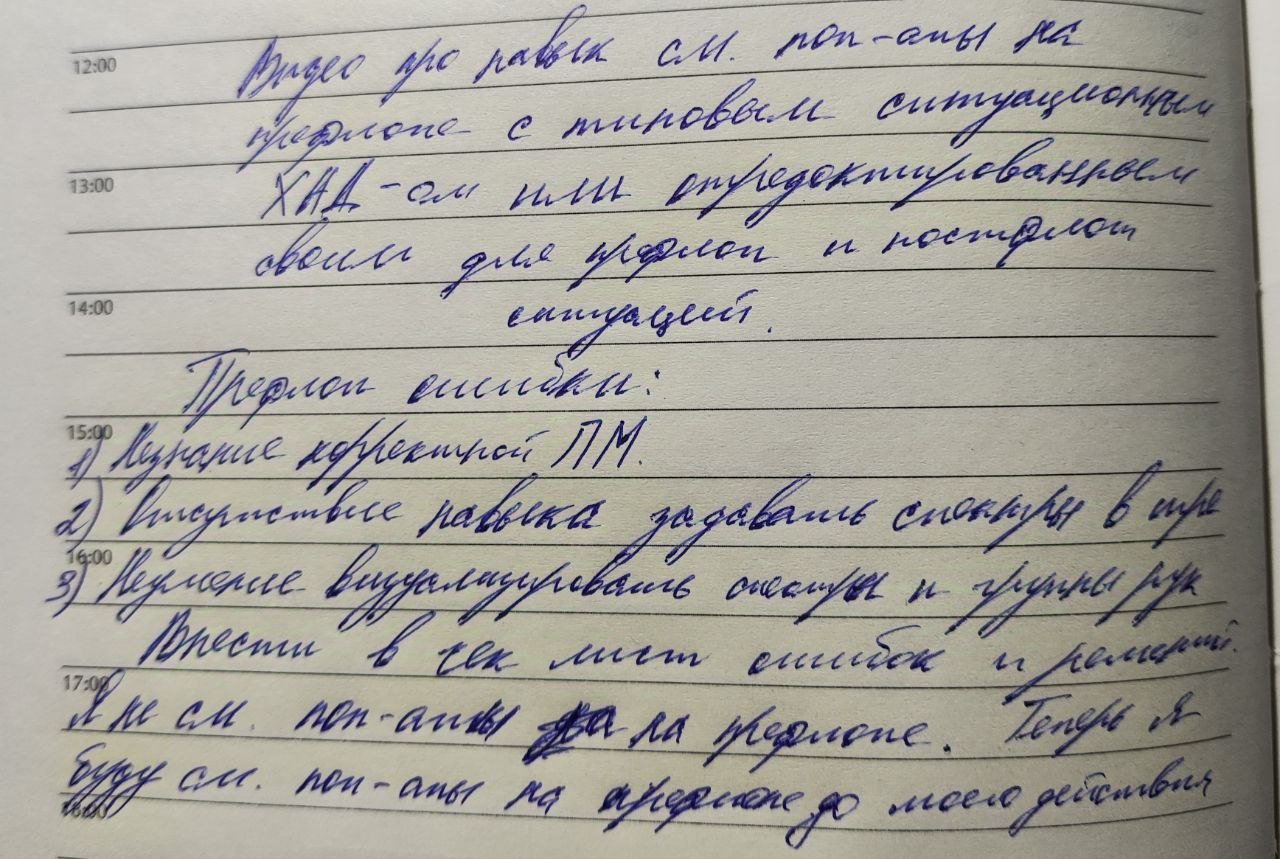 12:00
Видео про навык см. поп-апы на
префлопе с типовым ситуационным
13:00
ХАД-ом или отредоктированным
своим для префлоп и постфлоп
14:00
ситуаций.
Префлоп ошибки:
15:00
1) Незнание корректной ПМ.
2) Отсутствие навыка задавать спектры в игре
16:00
3) Неумение визуализировать спектры и группы рук
Внести в чек лист ошибок и решений.
17:00
Я не см. поп-апы на префлопе. Теперь я
буду см. поп-апы на префлопе до моего действия
18:00